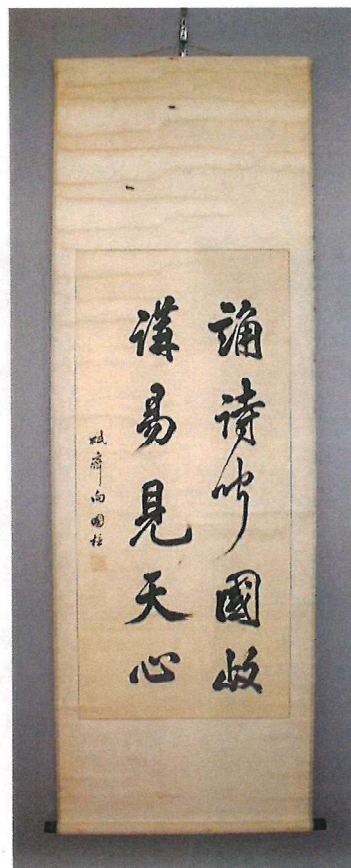 誦詩聞國政
講易見天心
齋向國柱